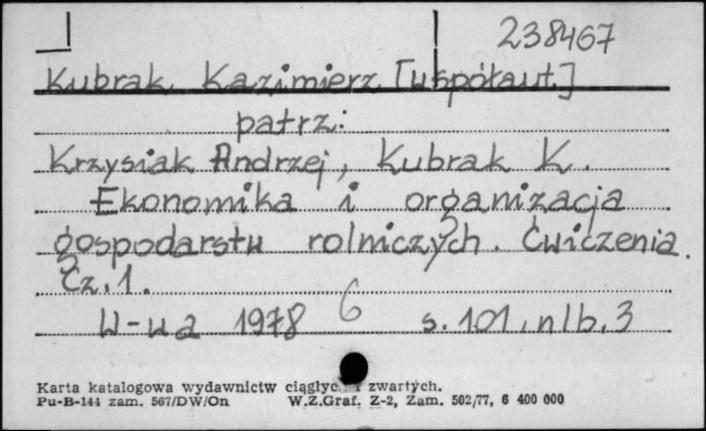 238467
Kubrak Kazimierz [współaut.]
patrz:
Krzysiak Andrzej, Kubrak K.
Ekonomika i organizacja
gospodarstw rolniczych. Ćwiczenia.
Cz. 1.
W-wa 1978 6 s. 101, nlb. 3
Karta katalogowa wydawnictw ciągłyc i zwartych.
Pu-B-144 zam. 567/DW/On W.Z.Graf. Z-2, Zam. 502/77, 6 400 000